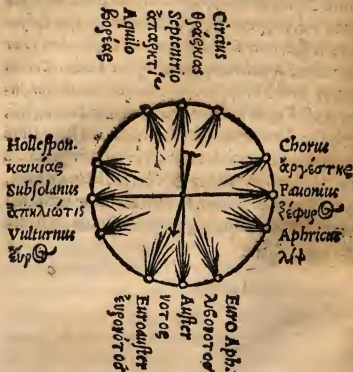 Circius
θράσκιας
Septentrio
ἀπαρκτί
Aquilo
βορέας
Hollespon.
καικίας
Subsolanus
ἀπηλιώτις
Vulturnus
ἔυρος
Chorus
ἀργέστης
Fauonius
ζέφυρος
Aphricus
λίψ
Euro Aph.
λιβονοτος
Auster
νοτος
Euroauster
ἐυρονότος